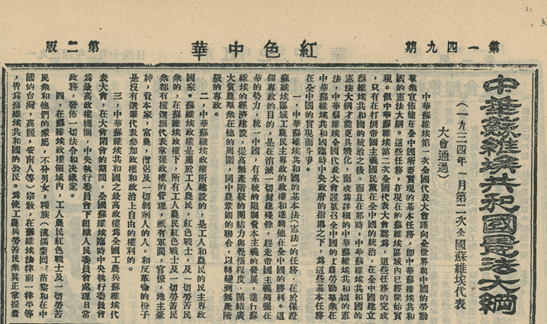 第一四九期
紅色中華
第二版
中華蘇維埃共和國憲法大綱
(一九三四年一月第二次全國蘇維埃代表
大會通過)
中華蘇維埃第一次全國代表大會謹向全世界與中國的勞動
羣衆宣佈他在全中國所要實現的基本任務，即中華蘇維埃共和
國的憲法大綱。這些任務，在現在的蘇維埃區域內已經開始實
現。但中華蘇維埃第二次全國代表大會認爲，這些任務的完成
，只有在打倒帝國主義國民黨在全中國的統治，在全中國建立
蘇維埃共和國的統治之後。而且在那時，中華蘇維埃共和國的
憲法大綱更具體化，而成爲詳細的中華蘇維埃共和國的憲
法。中華蘇維埃全國代表大會謹號召全中國的工農勞動羣衆，
在中華蘇維埃共和國臨時中央政府的指導之下，爲這些基本任務
在全中國的實現而鬥爭。
一，中華蘇維埃共和國的基本法(憲法)的任務，在於保證
蘇維埃區域工農民主專政的政權和達到他在全中國的勝利。這
個專政的目的，是在消滅一切封建殘餘，趕走帝國主義列強在
華的勢力，統一中國，有系統的限制資本主義的發展，進行蘇
維埃的經濟建設，提高無產階級的團結力與覺悟程度，團結廣
大貧農羣衆在他的周圍，同中農鞏固的聯合，以轉變到無產階
級的專政。
二，中華蘇維埃政權所建設的，是工人和農民的民主專政
國家。蘇維埃政權是屬於工人農民，紅色戰士及一切勞苦民
衆的，在蘇維埃政權下，所有工人農民紅色戰士及一切勞苦民
衆都有權選派代表掌握政權的管理，祇有軍閥，官僚，地主豪
紳，資本家，富農，僧侶及一切剝削人的人，和反革命的份子
是沒有選舉代表參加政權和政治上自由的權利的。
三，中華蘇維埃共和國之最高政權爲全國工農兵蘇維埃代
表大會，在大會閉會的期間，全國蘇維埃臨時中央執行委員會
爲最高政權機關，中央執行委員會下組織人民委員會處理日常
政務，發佈一切法令和決議案。
四，在蘇維埃政權領域內，工人農民紅色戰士及一切勞苦
民衆和他們的家屬，不分男女，種族(漢滿蒙回藏苗黎和在中
國的台灣，高麗，安南人等)宗教，在蘇維埃法律前一律平等
，皆爲蘇維埃共和國的公民。爲使工農兵勞苦民衆眞正掌握着